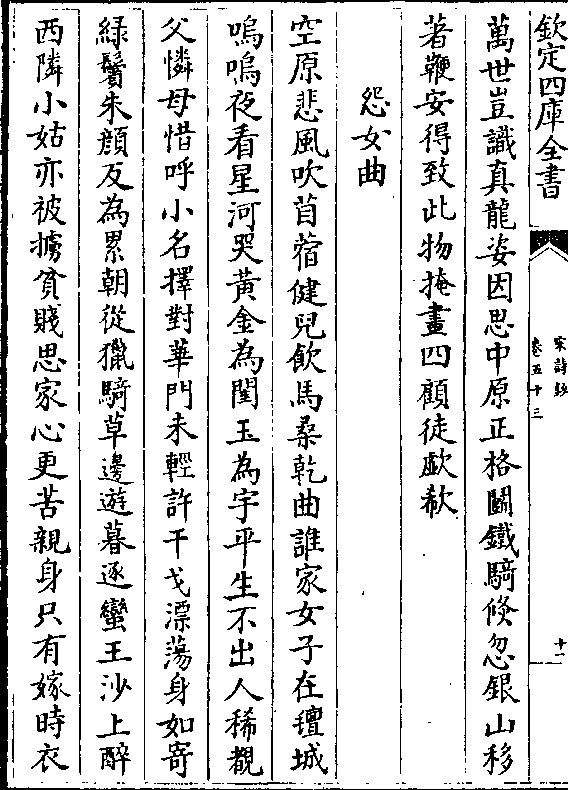 欽定四庫全書
宋詩鈔
卷五十三
十一
萬世豈識真龍姿因思中原正格鬭鐵騎倏忽銀山移
著鞭安得致此物掩畫四顧徒歔欷
怨女曲
空原悲風吹苜蓿健兒飲馬桑乾曲誰家女子在氊城
嗚嗚夜看星河哭黃金為閨玉為宇平生不出人稀覩
父憐母惜呼小名擇對華門未輕許干戈漂蕩身如寄
緑鬢朱顔反為累朝從獵騎草邊遊暮逐蠻王沙上醉
西隣小姑亦被擄貧賤思家心更苦親身只有嫁時衣